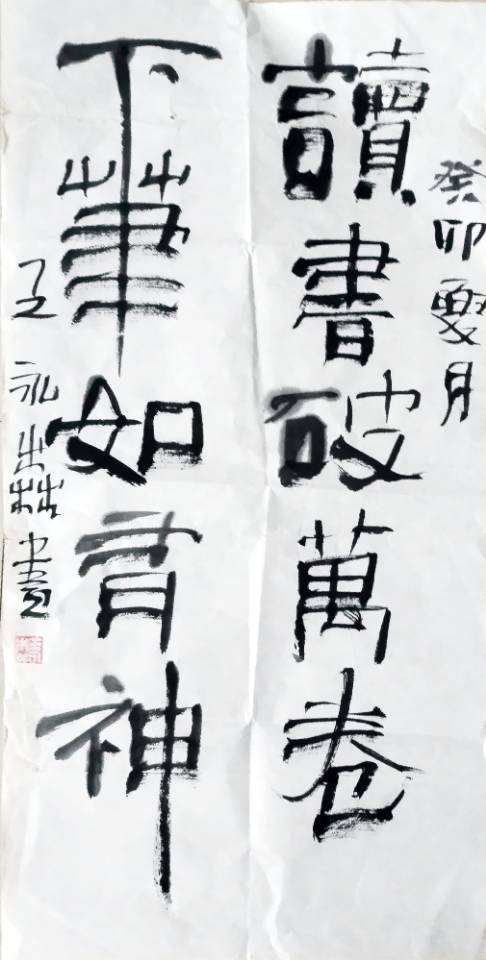 癸卯夏月
讀書破萬卷
下筆如有神
永 書